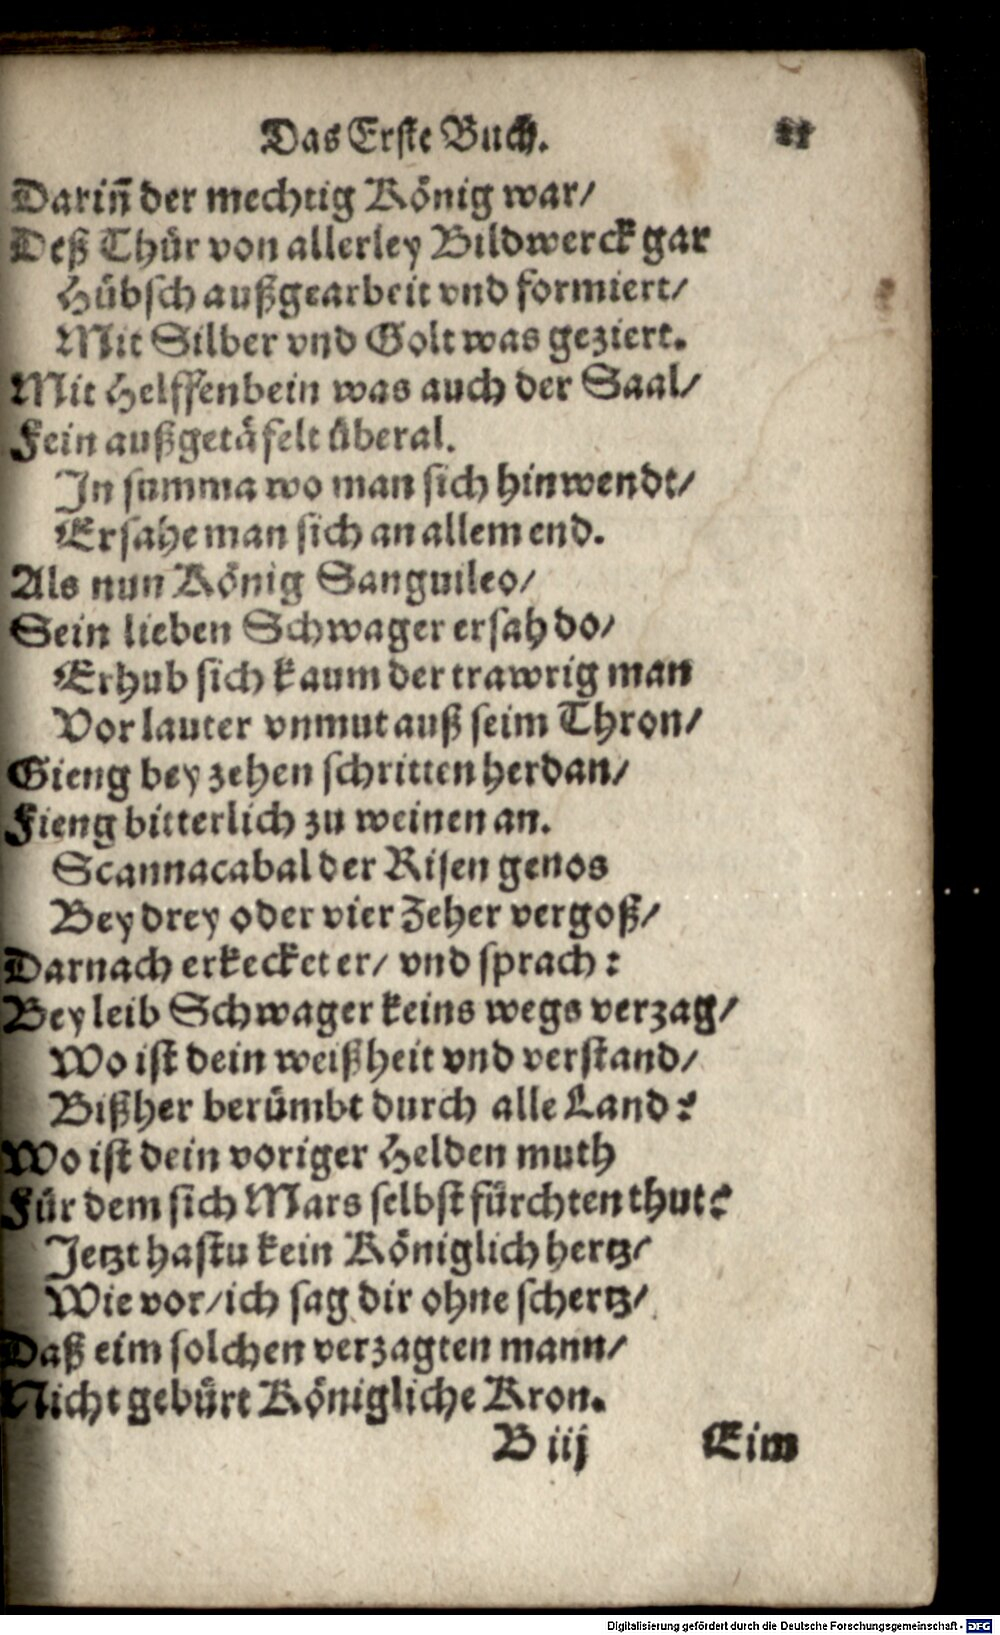 Das Erste Buch. 21
Dariñ der mechtig König war/
Deß Thür von allerley Bildwerck gar
Hübsch außgearbeit vnd formiert/
Mit Silber vnd Golt was geziert.
Mit Helffenbein was auch der Saal/
Fein außgetäfelt überal.
In summa wo man sich hin wendt/
Ersahe man sich an allem end.
Als nun König Sanguileo/
Sein lieben Schwager ersah do/
Erhub sich kaum der trawrig man
Vor lauter vnmut auß seim Thron/
Gieng bey zehen schritten herdan/
Fieng bitterlich zu weinen an.
Scannacabal der Risen genos
Bey drey oder vier Zeher vergoß/
Darnach erkecket er/ vnd sprach:
Bey leib Schwager keins wegs verzag/
Wo ist dein weißheit vnd verstand/
Bißher berümbt durch alle Land?
Wo ist dein voriger Helden muth
Für dem sich Mars selbst fürchten thut?
Jetzt hastu kein Königlich hertz/
Wie vor/ ich sag dir ohne schertz/
Daß eim solchen verzagten mann/
Nicht gebürt Königliche Kron.
B iij Eim
Digitalisierung gefördert durch die Deutsche Forschungsgemeinschaft - DFG